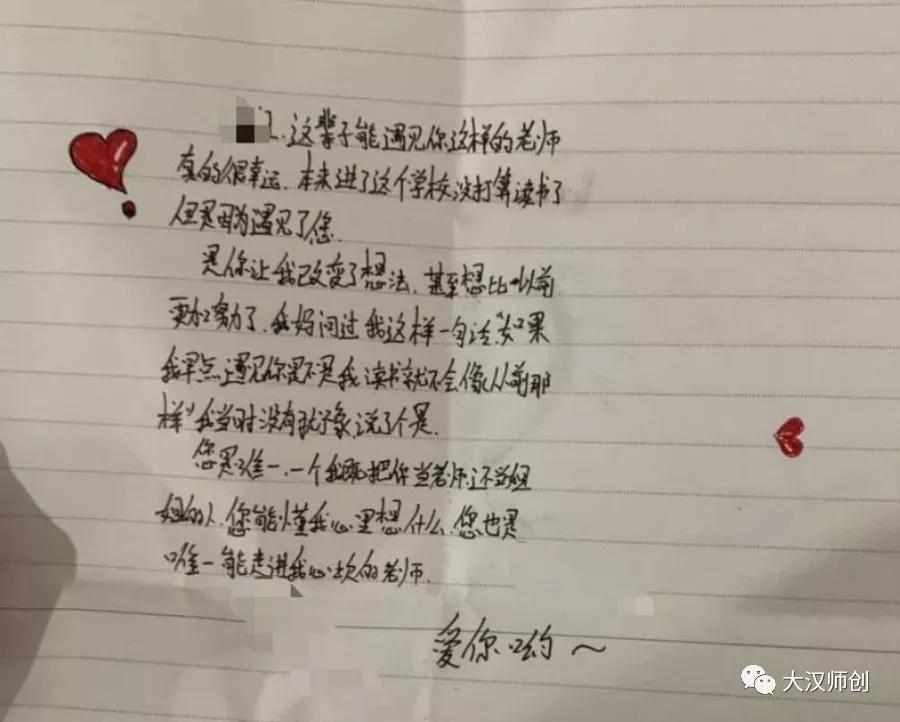 这辈子能遇见你这样的老师
真的很幸运、本来进了这个学校没打算读书了
但是因为遇见了您.
是你让我改变了想法、甚至想比以前
更加努力了、我妈问过我这样一句话"如果
我早点遇见你是不是我读书就不会像从前那
样"我当时没有犹豫说了个是.
您是唯一、一个我既把你当老师还当姐
姐的人、您能懂我心里想什么、您也是
唯一能走进我心坎的老师.
爱你哟～
大汉师创